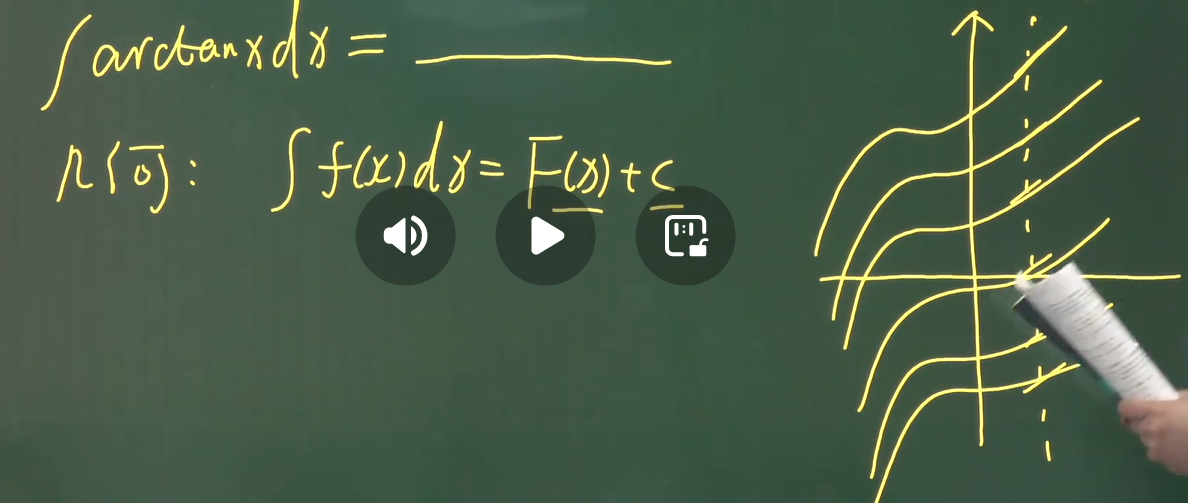 ∫ arctanxdx = ________
R{0}: ∫ f(x)dx = F(x) + c